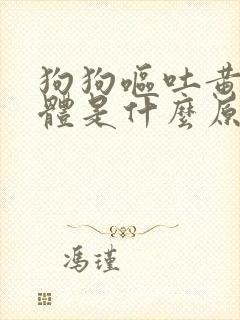 狗狗嘔吐黃
體是什麼原
馮瑾